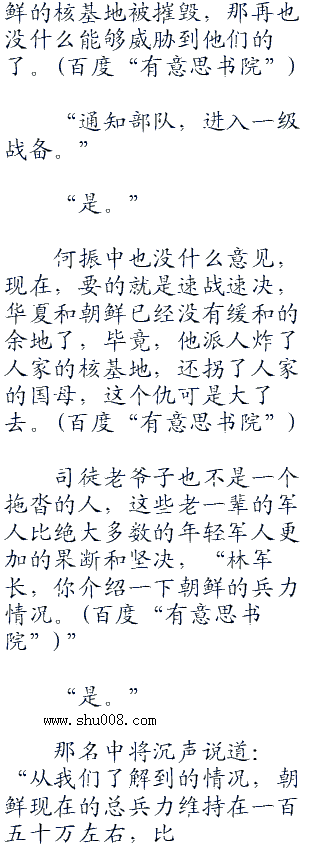 鲜的核基地被摧毁，那再也
没什么能够威胁到他们的
了。(百度“有意思书院”)
“通知部队，进入一级
战备。”
“是。”
何振中也没什么意见，
现在，要的就是速战速决，
华夏和朝鲜已经没有缓和的
余地了，毕竟，他派人炸了
人家的核基地，还拐了人家
的国母，这个仇可是大了
去。(百度“有意思书院”)
司徒老爷子也不是一个
拖沓的人，这些老一辈的军
人比绝大多数的年轻军人更
加的果断和坚决，“林军
长，你介绍一下朝鲜的兵力
情况。(百度“有意思书
院”)”
“是。”
www.shu008.com
那名中将沉声说道：
“从我们了解到的情况，朝
鲜现在的总兵力维持在一百
五十万左右，比